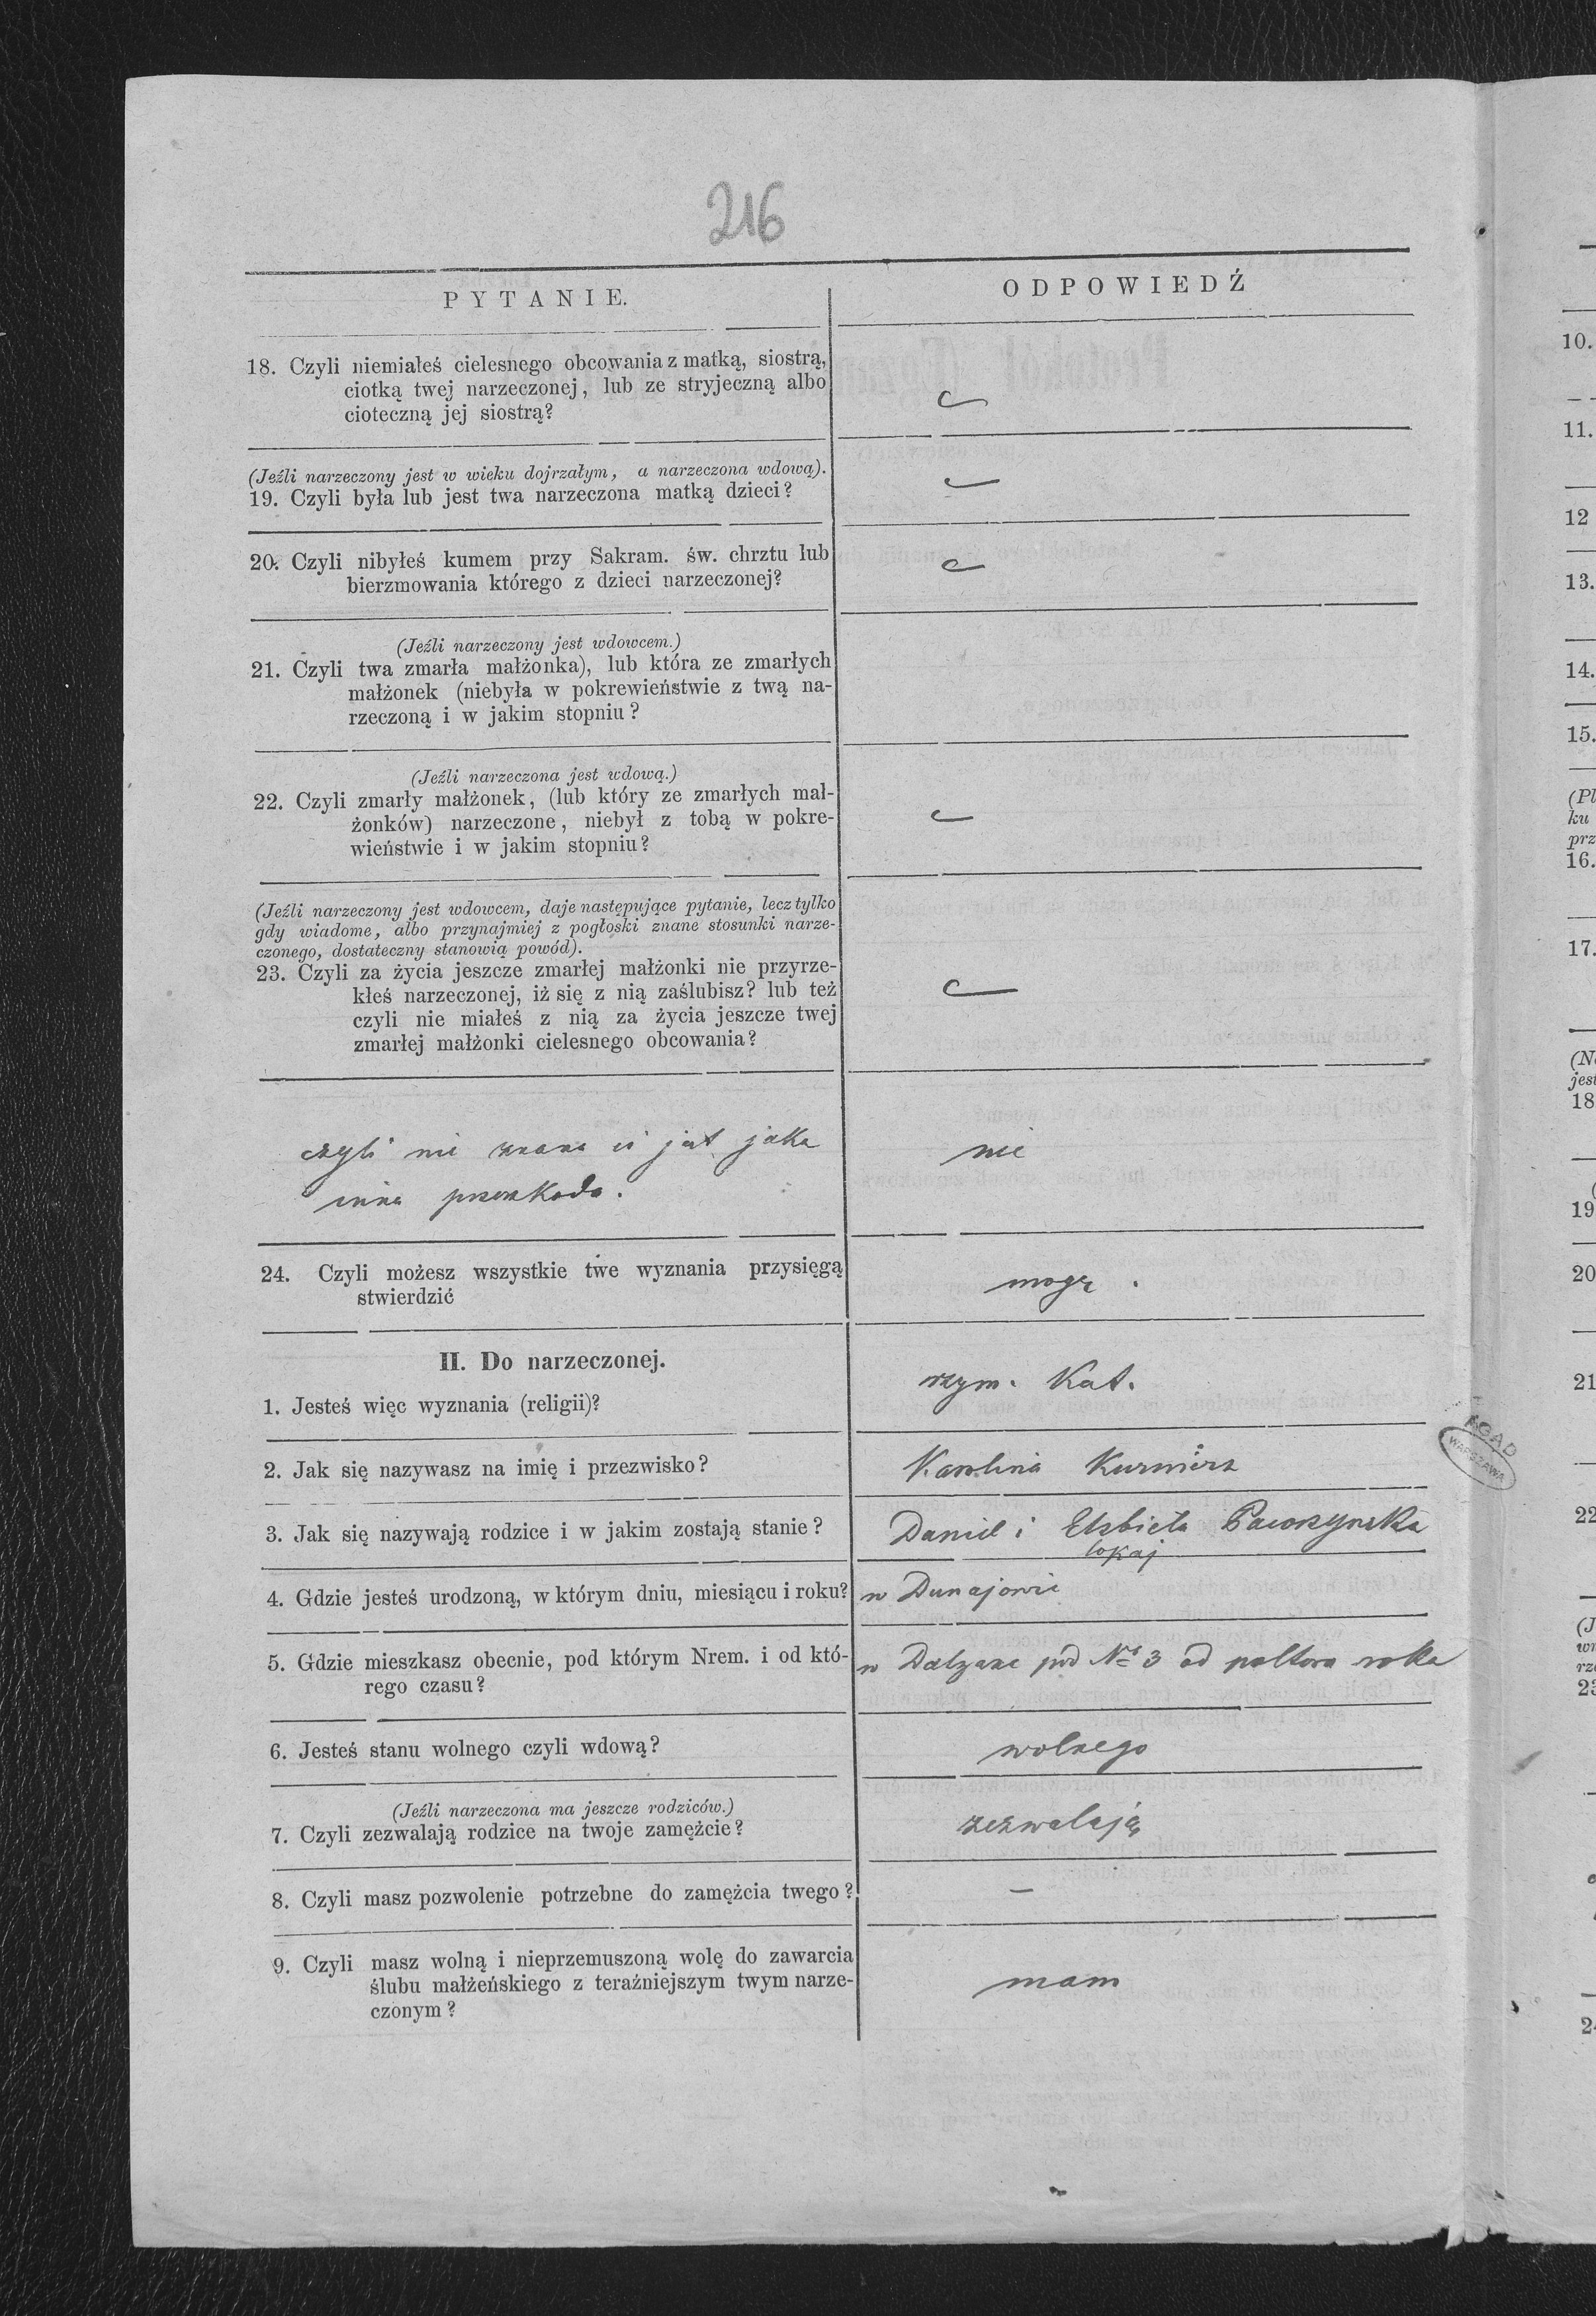 216
PYTANIE.
ODPOWIEDŹ
18. Czyli niemiałeś cielesnego obcowania z matką, siostrą,
ciotką twej narzeczonej, lub ze stryjeczną albo
cioteczną jej siostrą?
(Jeźli narzeczony jest w wieku dojrzałym, a narzeczona wdową).
19. Czyli była lub jest twa narzeczona matką dzieci?
20. Czyli nibyłeś kumem przy Sakram. św. chrztu lub
bierzmowania którego z dzieci narzeczonej?
(Jeźli narzeczony jest wdowcem.)
21. Czyli twa zmarła małżonka), lub która ze zmarłych
małżonek (niebyła w pokrewieństwie z twą na-
rzeczoną i w jakim stopniu?
(Jeźli narzeczona jest wdową.)
22. Czyli zmarły małżonek, (lub który ze zmarłych mał-
żonków) narzeczone, niebył z tobą w pokre-
wieństwie i w jakim stopniu?
(Jeźli narzeczony jest wdowcem, daje następujące pytanie, lecz tylko
gdy wiadome, albo przynajmiej z pogłoski znane stosunki narze-
czonego, dostateczny stanowią powód).
23. Czyli za życia jeszcze zmarłej małżonki nie przyrze-
kłeś narzeczonej, iż się z nią zaślubisz? lub też
czyli nie miałeś z nią za życia jeszcze twej
zmarłej małżonki cielesnego obcowania?
czyli nie znana ci jest jaka
inna przeszkoda.
nie
24. Czyli możesz wszystkie twe wyznania przysięgą
stwierdzić
mogę.
II. Do narzeczonej.
1. Jesteś więc wyznania (religii)?
rzym. Kat.
2. Jak się nazywasz na imię i przezwisko?
Karolina
3. Jak się nazywają rodzice i w jakim zostają stanie?
Daniel i Elżbieta
lokaj
4. Gdzie jesteś urodzoną, w którym dniu, miesiącu i roku?
w Dunajowie
5. Gdzie mieszkasz obecnie, pod którym Nrem. i od któ-
rego czasu?
w pod No 3 od półtora roku
6. Jesteś stanu wolnego czyli wdową?
wolnego
(Jeźli narzeczona ma jeszcze rodziców.)
7. Czyli zezwalają rodzice na twoje zamęźcie?
zezwalają
8. Czyli masz pozwolenie potrzebne do zamęźcia twego?
–
9. Czyli masz wolną i nieprzemuszoną wolę do zawarcia
ślubu małżeńskiego z teraźniejszym twym narze-
czonym?
mam
AGAD
WARSZAWA
10.
11.
12
13.
14.
15.
(Pl
ku
prz
16.
17.
jest
18
19
20
21
22